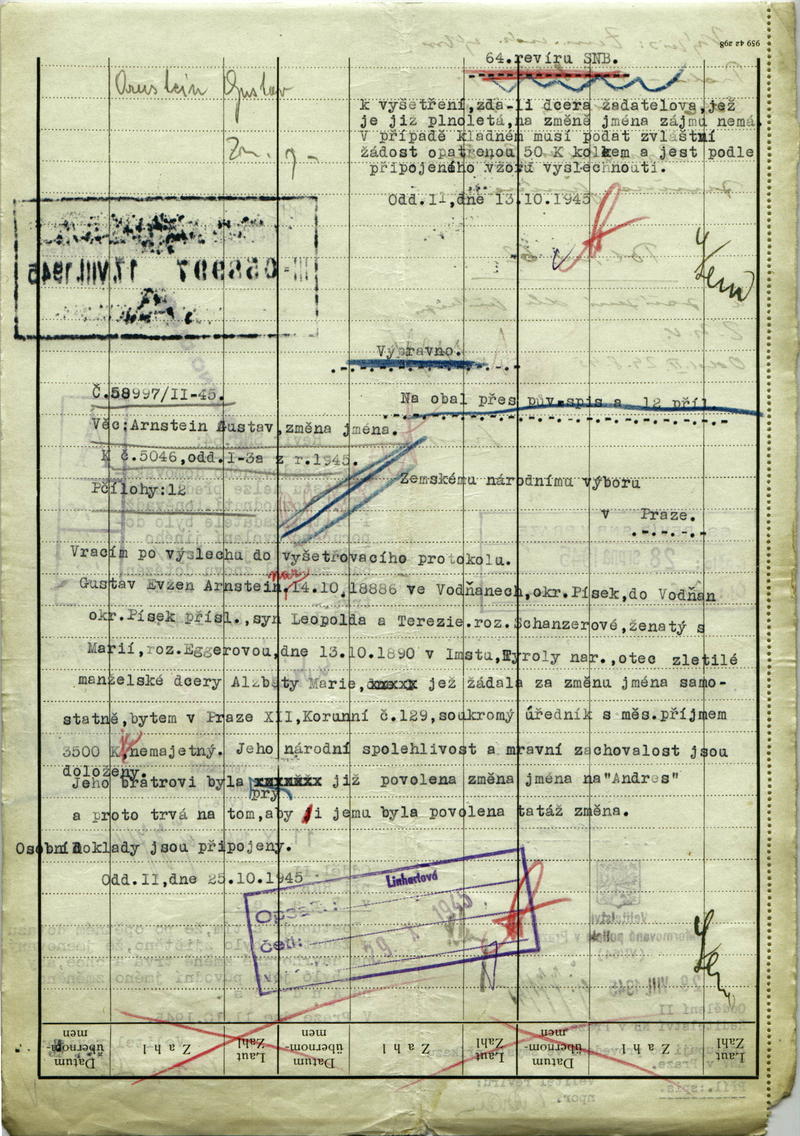 959 42 298
64.revíru SNB.
Arnstein Gustav
k vyšetření,zda-li dcera žadatelova,jež
je již plnoletá,na změně jména zájmu nemá.
V případě kladném musí podat zvláštní
žádost opatřenou 50 K kolkem a jest podle
připojeného vzoru vyslechnouti.
Odd.II,dne 13.10.1945
III-058997 17.VIII.1945
Výpravno.
Č.58997/II-45.
Na obal přes pův.spis a 12 příl.
Věc:Arnstein Gustav,změna jména.
K č.5046,odd.I-3a z r.1945.
Zemskému národnímu výboru
Přílohy:12
v Praze.
Vracím po výslechu do vyšetřovacího protokolu.
nar.
Gustav Evžen Arnstein,14.10.18886 ve Vodňanech,okr.Písek,do Vodňan
okr.Písek přísl.,syn Leopolda a Terezie.roz.Schanzerové,ženatý s
Marií,roz.Eggerovou,dne 13.10.1890 v Imstu,Tyroly nar.,otec zletilé
manželské dcery Alzběty Marie, jež žádala za změnu jména samo-
statně,bytem v Praze XII,Korunní č.129,soukromý úředník s měs.příjmem
3500 K,nemajetný. Jeho národní spolehlivost a mravní zachovalost jsou
doloženy.
Jeho bratrovi byla prý již povolena změna jména na"Andres"
a proto trvá na tom,aby i jemu byla povolena tatáž změna.
Osobní doklady jsou připojeny.
Odd.II,dne 25.10.1945
Linhartová
Opsal:
Četl:
Datum übernom-men
Zahl
Laut Zahl
Datum übernom-men
Zahl
Laut Zahl
Datum übernom-men
Zahl
Laut Zahl